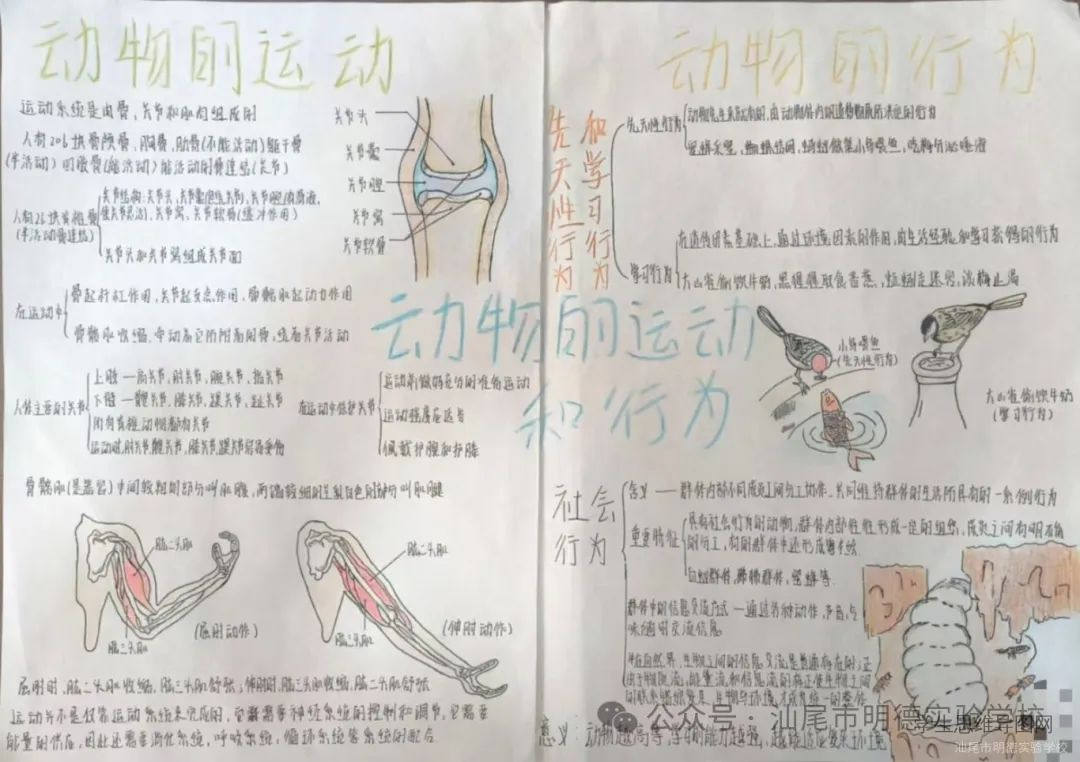 动物的运动
运动系统是由骨,关节和肌肉组成的
人有206块骨颅骨,胸骨,肋骨(不能活动)躯干骨
(半活动)四肢骨(能活动)能活动的骨连结(关节)
人有26块脊椎骨
(半活动骨连结)
关节结构:关节头,关节囊
关节窝,关节软骨(缓冲作用)
关节头和关节窝组成关节面
关节头
关节囊
关节腔
关节窝
关节软骨
在运动中
骨起杠杆作用,关节起支点作用,骨骼肌起动力作用
骨骼肌收缩,牵动着它所附着的骨,绕着关节活动
动物的运动
和行为
人体主要的关节
上肢一肩关节,肘关节,腕关节,指关节
下肢一髋关节,膝关节,踝关节,趾关节
在运动中保护关节
运动前做好充分的准备运动
运动强度应适当
佩戴护腕和护膝
骨骼肌(是器官)中间较粗的部分叫肌腹,两端较细的呈乳白色的部分叫肌腱
肱二头肌
肱三头肌
(屈肘动作)
肱二头肌
肱三头肌
(伸肘动作)
屈肘时,肱二头肌收缩,肱三头肌舒张,伸肘时,肱三头肌收缩,肱二头肌舒张
运动并不是仅靠运动系统来完成的,它需要神经系统的控制和调节,它需要
能量的供应,因此还需要消化系统,呼吸系统,循环系统等系统的配合
动物的行为
先天性行为
和学习行为
先天性行为
动物生来就有的,由动物体内的遗传物质所决定的行为
蜜蜂采蜜,蜘蛛结网
小鸟喂鱼,吃梅分泌唾液
学习行为
在遗传因素基础上,通过环境因素的作用,由生活经验和学习获得的行为
大山雀偷饮牛奶,黑猩猩取食香蕉
走迷宫,谈梅止渴
小鸟喂鱼
(先天性行为)
大山雀偷饮牛奶
(学习行为)
社会
行为
含义一群体内部不同成员之间分工协作,共同维持群体的生活所具有的一系列行为
重要特征
具有社会行为的动物,群体内部往往形成一定的组织,成员之间有明确
的分工,有的群体中还形成等级
白蚁群体,狒狒群体,蜜蜂等
群体中的信息交流方式一通过各种动作,声音,气
味
交流信息
在自然界,生物之间的信息交流是普遍存在的,正
由于物质流,能量流和信息流的存在使生物之间
的联系错综复杂,生物与环境才成为统一的整体
意义:动物越高等,学习的能力越强,越能适应复杂环境
公众号:汕尾市明德实验学校
学生思维导图网
汕尾市明德实验学校